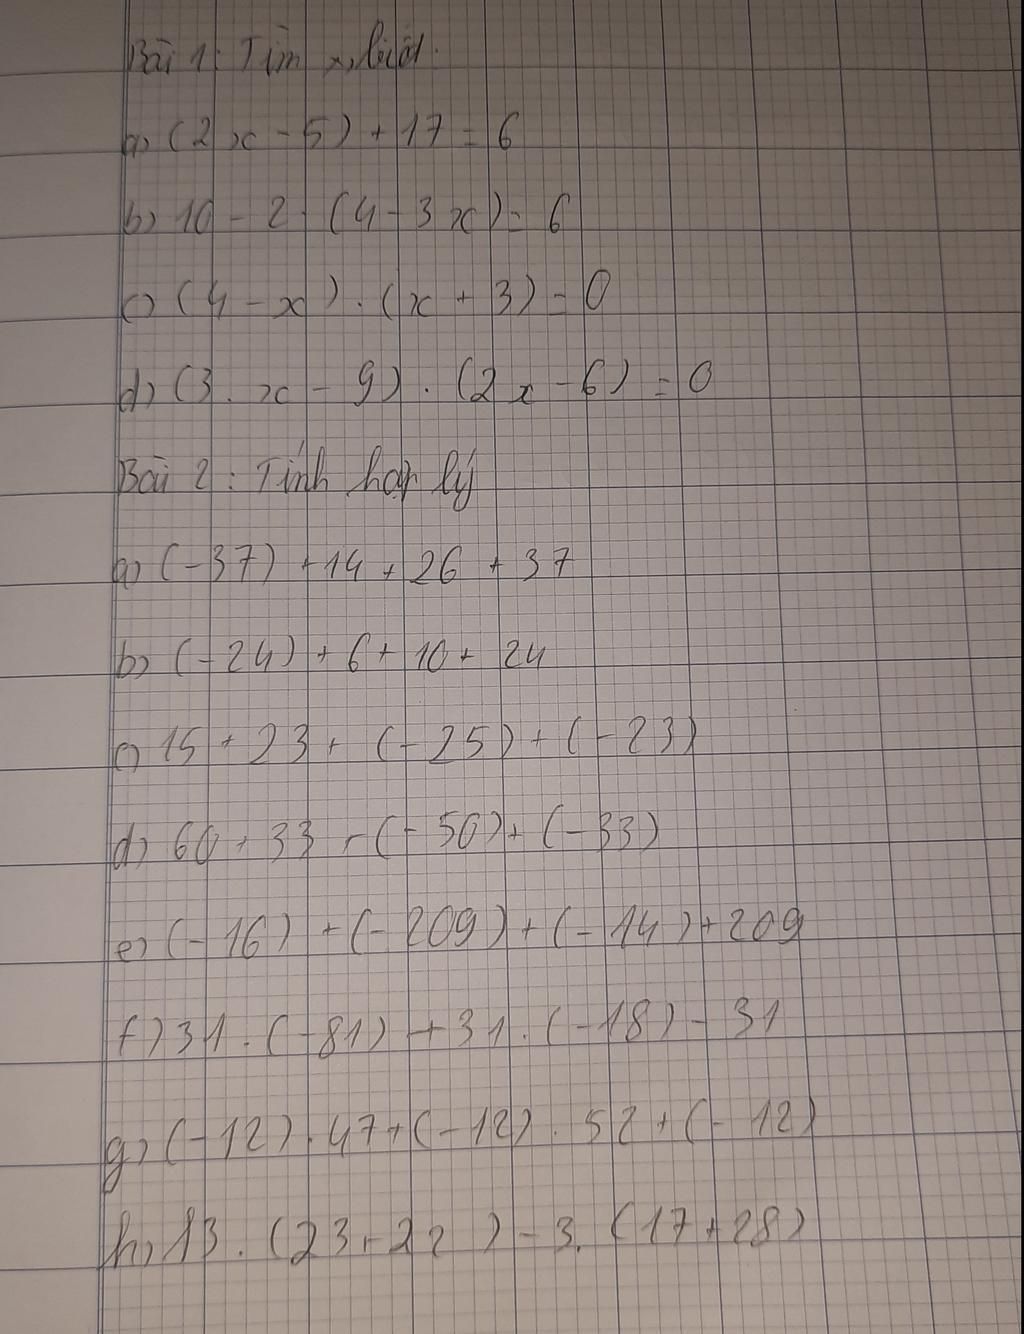 Bài 1: Tìm x, biết.
a) (2x - 5) + 17 = 6
b) 10 - 2 . (4 - 3x) = 6
c) (4 - x) . (x + 3) = 0
d) (3 . x - 9) . (2x - 6) = 0
Bài 2 : Tính hợp lý
a) (-37) + 14 + 26 + 37
b) (-24) + 6 + 10 + 24
c) 15 + 23 + (-25) + (-23)
d) 60 + 33 + (-50) + (-33)
e) (-16) + (-209) + (-14) + 209
f) 31 . (-81) + 31 . (-18) - 31
g) (-12) . 47 + (-12) . 52 + (-12)
h) 13 . (23 + 22) - 3 . (17 + 28)